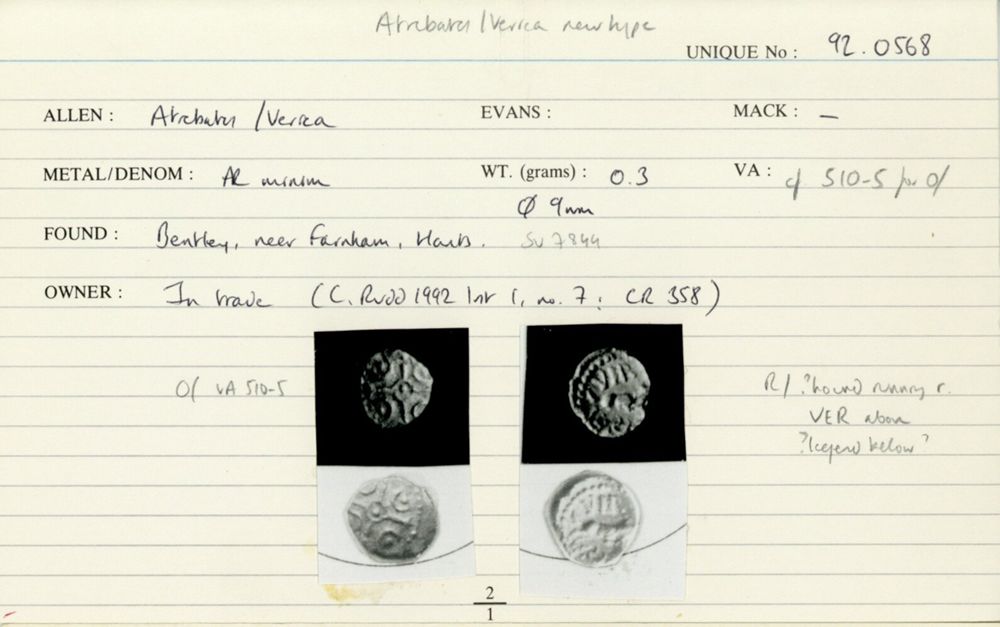 Atrebates / Verica new type
UNIQUE No : 92.0568
ALLEN : Atrebates / Verica EVANS : MACK : —
METAL/DENOM : AR minim WT. (grams) : 0.3 VA : cf 510-5 for O/
Ø 9mm
FOUND : Bentley, near Farnham, Hants. SU 7844
OWNER : In trade (C. Rudd 1992 list 1, no. 7 ; CR 358)
O/ VA 510-5
R/ ?hound running r.
VER above
?legend below?
2
1